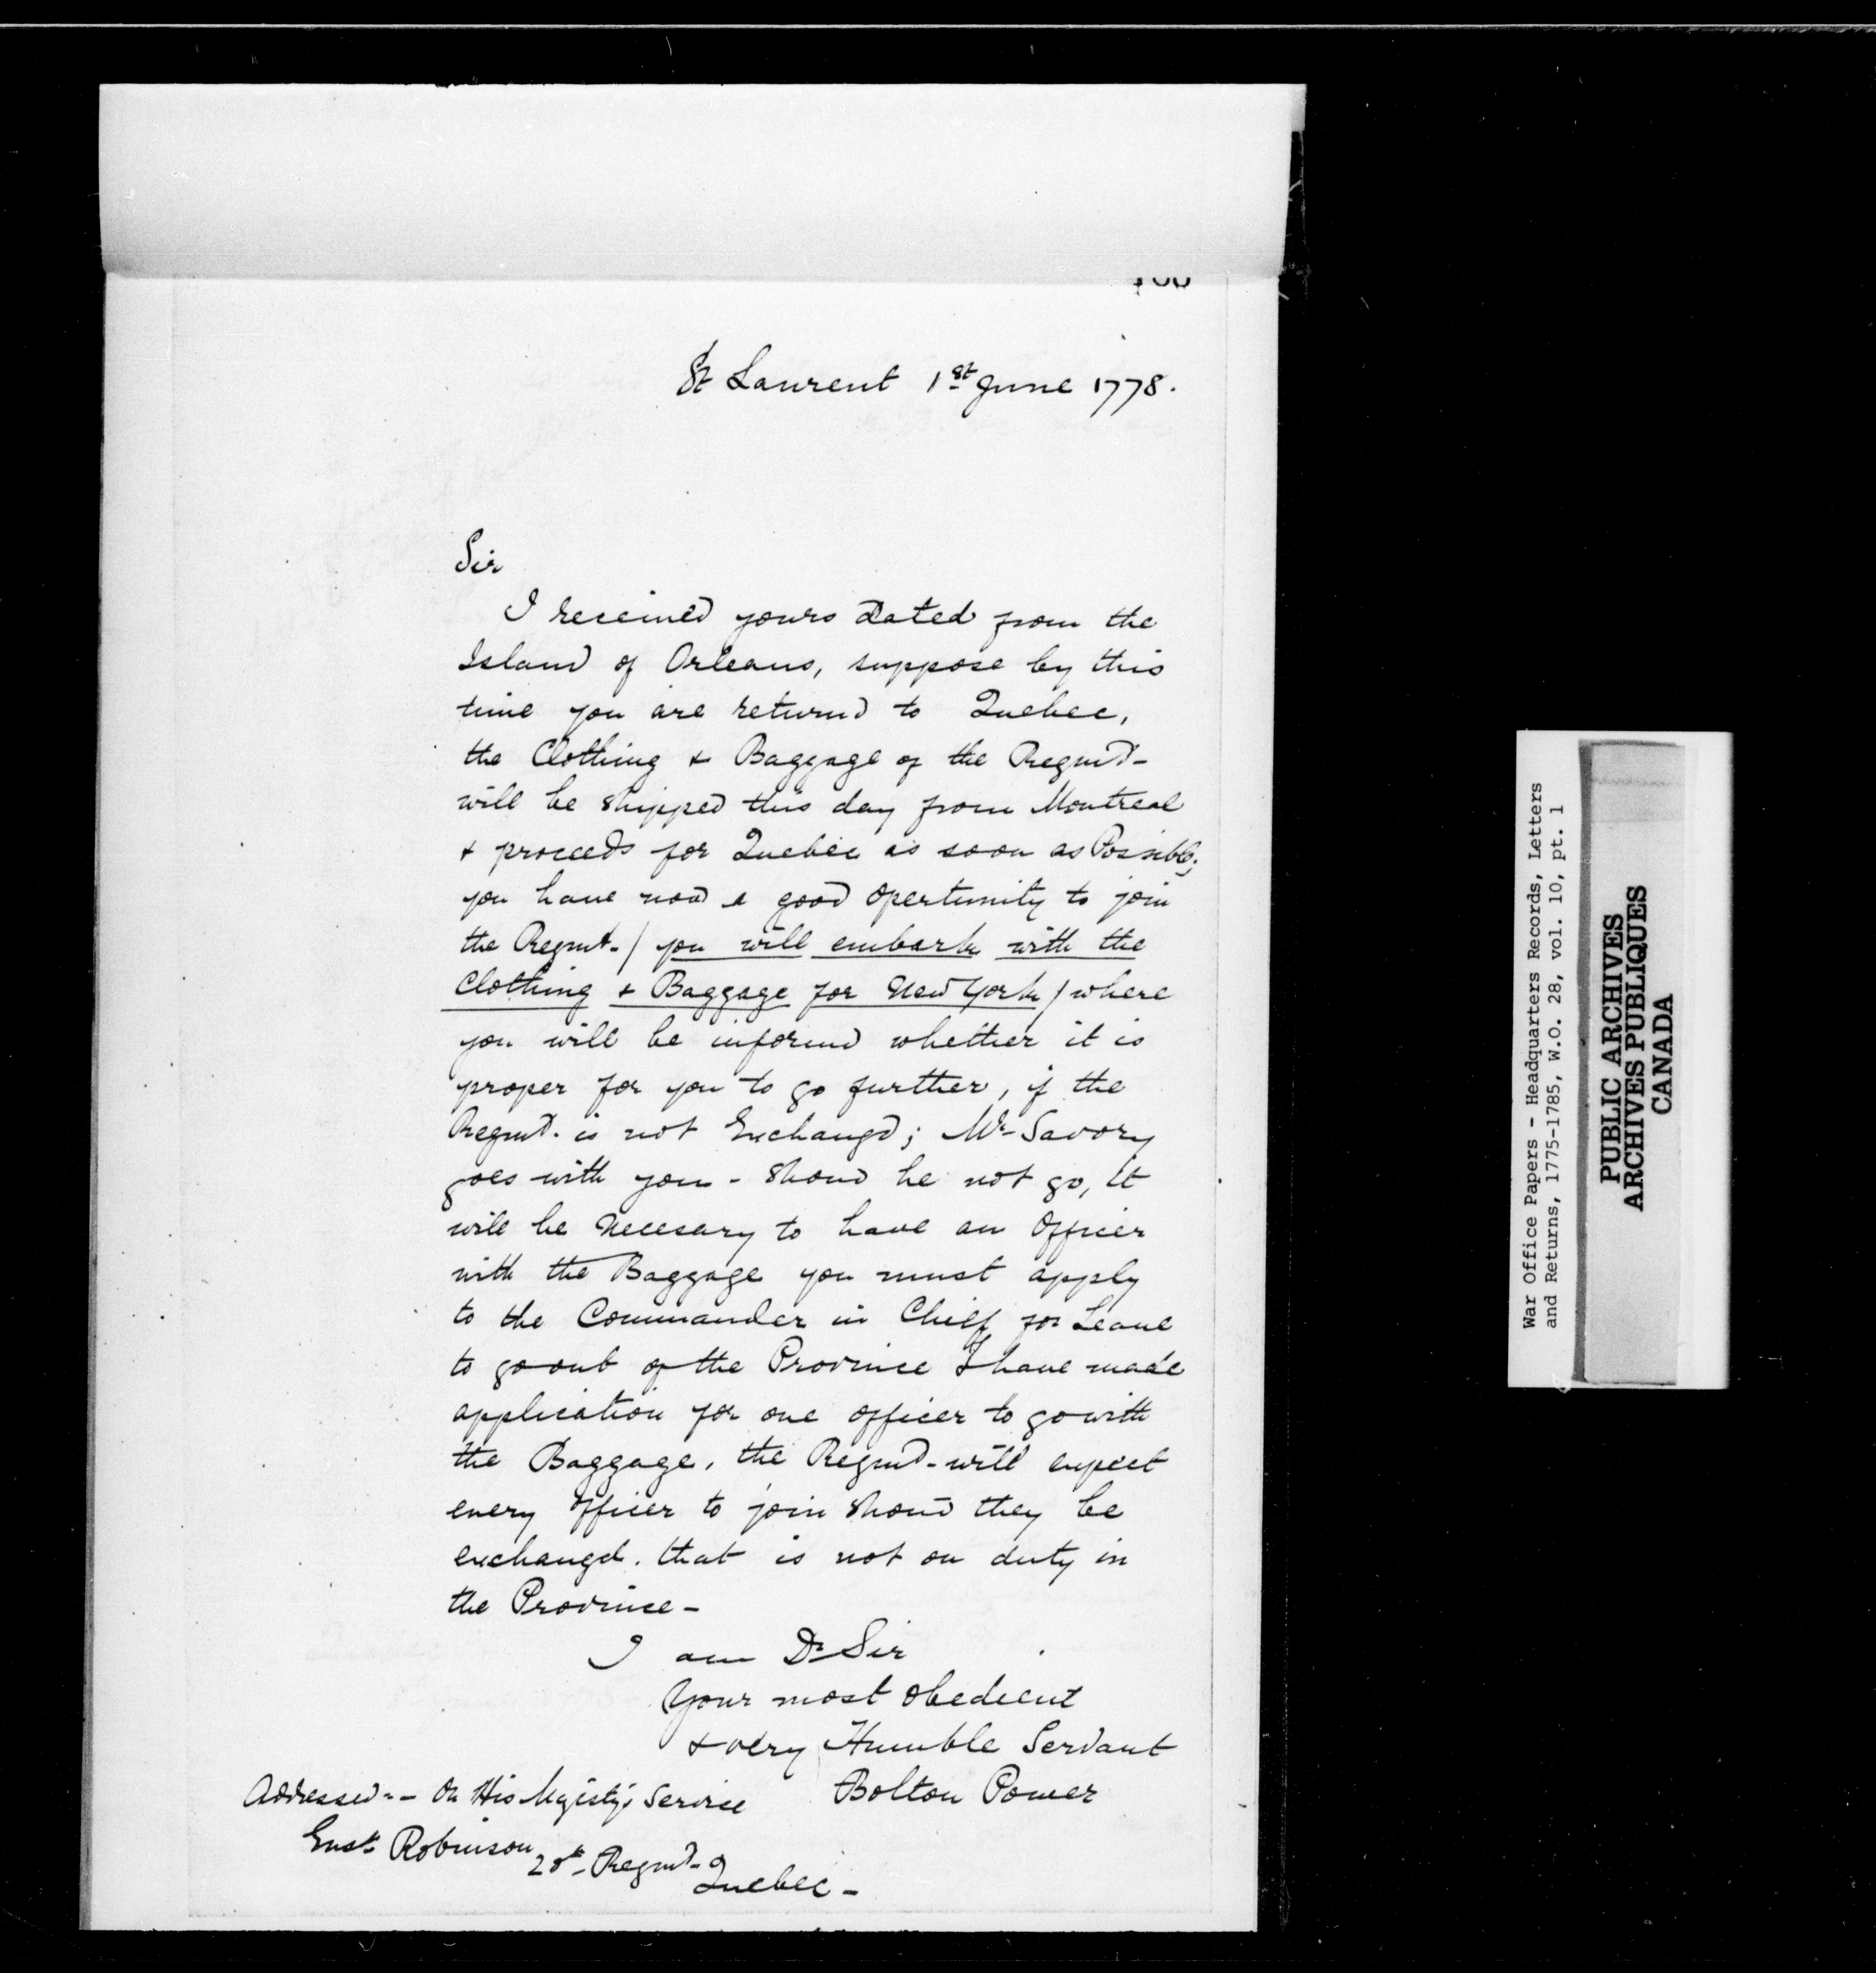 St Laurent 1st June 1778.
Sir
I received yours dated from the
Island of Orleans, suppose by this
time you are returnd to Quebec,
the Clothing & Baggage of the Regmt-
will be shipped this day from Montreal
& proceeds for Quebec as soon as Possible;
you have now a good opertunity to join
the Regmt. / you will embark with the
Clothing & Baggage for New York / where
you will be informd whether it is
proper for you to go further, if the
Regmt. is not Exchangd; Mr Savory
goes with you - shoud he not go, it
will be necesary to have an Officer
with the Baggage you must apply
to the Commander in Chief for Leave
to go out of the Province I have made
application for one officer to go with
the Baggage, the Regmt- will expect
every officer to join shoud they be
exchangd. that is not on duty in
the Province -
I am Dr Sir
Your most obedient
& very Humble Servant
Bolton Power
Addressed - - On His Majesty's Service
Ensn Robinson
20th Regmt-
Quebec -
War Office Papers - Headquarters Records, Letters
and Returns, 1775-1785, W.O. 28, vol. 10, pt. 1
PUBLIC ARCHIVES
ARCHIVES PUBLIQUES
CANADA